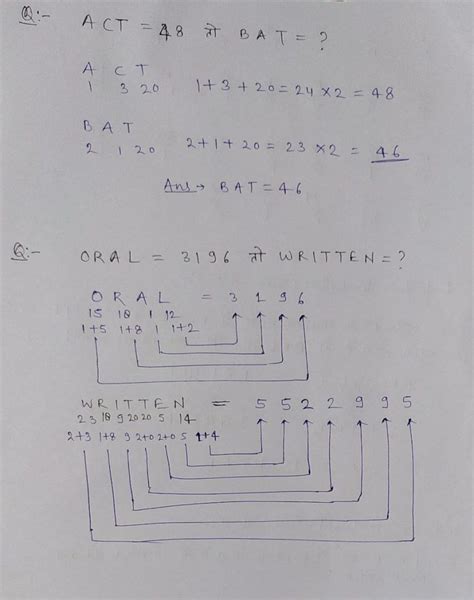 Q:- ACT = 48 तो BAT = ?
A C T
1 3 20 1+3+20 = 24 × 2 = 48
B A T
2 1 20 2+1+20 = 23 × 2 = 46
Ans → BAT = 46
Q:- ORAL = 3196 तो WRITTEN = ?
O R A L = 3 1 9 6
15 18 1 12
1+5 1+8 1 1+2
W R I T T E N = 5 5 2 2 9 9 5
23 18 9 20 20 5 14
2+3 1+8 9 2+0 2+0 5 1+4